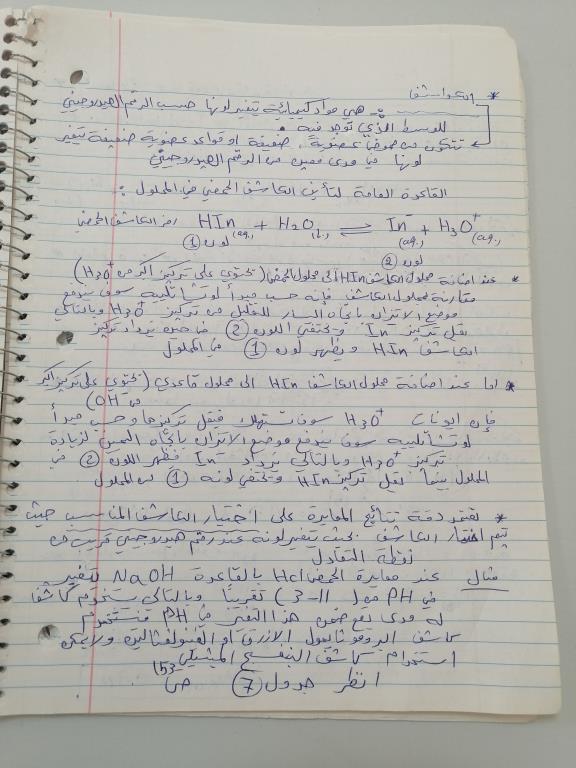 * الكواشف
:- هي مواد كيميائية يتغير لونها حسب الرقم الهيدروجيني
للوسط الذي توجد فيه .
تتكون من حموض عضوية ضعيفة او قواعد عضوية ضعيفة تتغير
لونها في مدى معين من الرقم الهيدروجيني
القاعدة العامة لتأين الكاشف الحمضي في المحلول :
رمز الكاشف الحمضي HIn(aq.) + H2O(l.) ⇌ In-(aq.) + H3O+(aq.)
لون ① لون ②
* عند اضافة محلول الكاشف HIn الى محلول الحمض (تحتوي على تركيز اكبر من H3O+)
مقارنة بمحلول الكاشف فإنه حسب مبدأ لوتشاتلييه سوف يندفع
موضع الاتزان باتجاه اليسار للتقليل من تركيز H3O+ وبالتالي
يقل تركيز In- ويختفي اللون ② في حين يزداد تركيز
الكاشف HIn ويظهر لون ① في المحلول
* اما عند اضافة محلول الكاشف HIn الى محلول قاعدي (تحتوي على تركيز اكبر
من OH-)
فإن ايونات H3O+ سوف تستهلك فيقل تركيزها وحسب مبدأ
لوتشاتلييه سوف يندفع موضع الاتزان باتجاه اليمين لزيادة
تركيز H3O+ وبالتالي يزداد In- فيظهر اللون ② في
المحلول بينما يقل تركيز HIn ويختفي لونه ① من المحلول
* تعتمد دقة نتائج المعايرة على اختيار الكاشف المناسب حيث
يتم اختيار الكاشف بحيث يتغير لونه عند رقم هيدروجيني قريب من
نقطة التعادل
مثال عند معايرة الحمض HCl بالقاعدة NaOH تتغير
في PH من (3-11) تقريبًا وبالتالي نستخدم كاشفا
له مدى يقع ضمن هذا التغير في PH فنستخدم
كاشف البروموثايمول الازرق او الفينولفثالين ولا يمكن
استخدام كاشف البنفسج الميثيلي
انظر جدول ⑦ ص 153